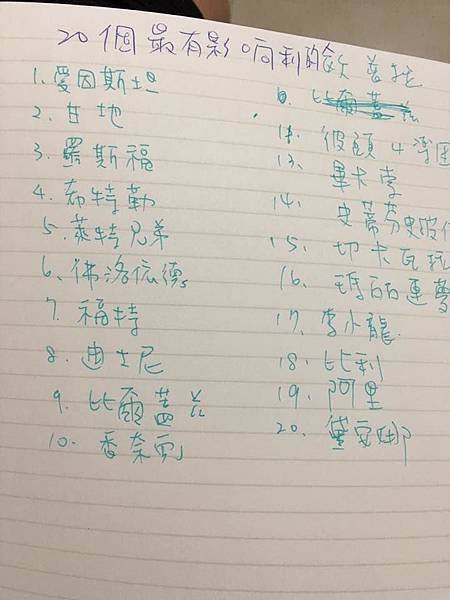 20個最有影响利的 歐普拉
1.愛因斯坦
2.甘地
3.羅斯福
4.希特勒
5.萊特兄弟
6、佛洛依德
7.福特
8.迪士尼
9.比爾蓋茲
10.香奈兒
彼頭4
13、畢卡索
14.史蒂芬史
15、切卡瓦
16、瑪丽蓮夢
17、李小龍
18、比利
19、阿里
20.黛安娜